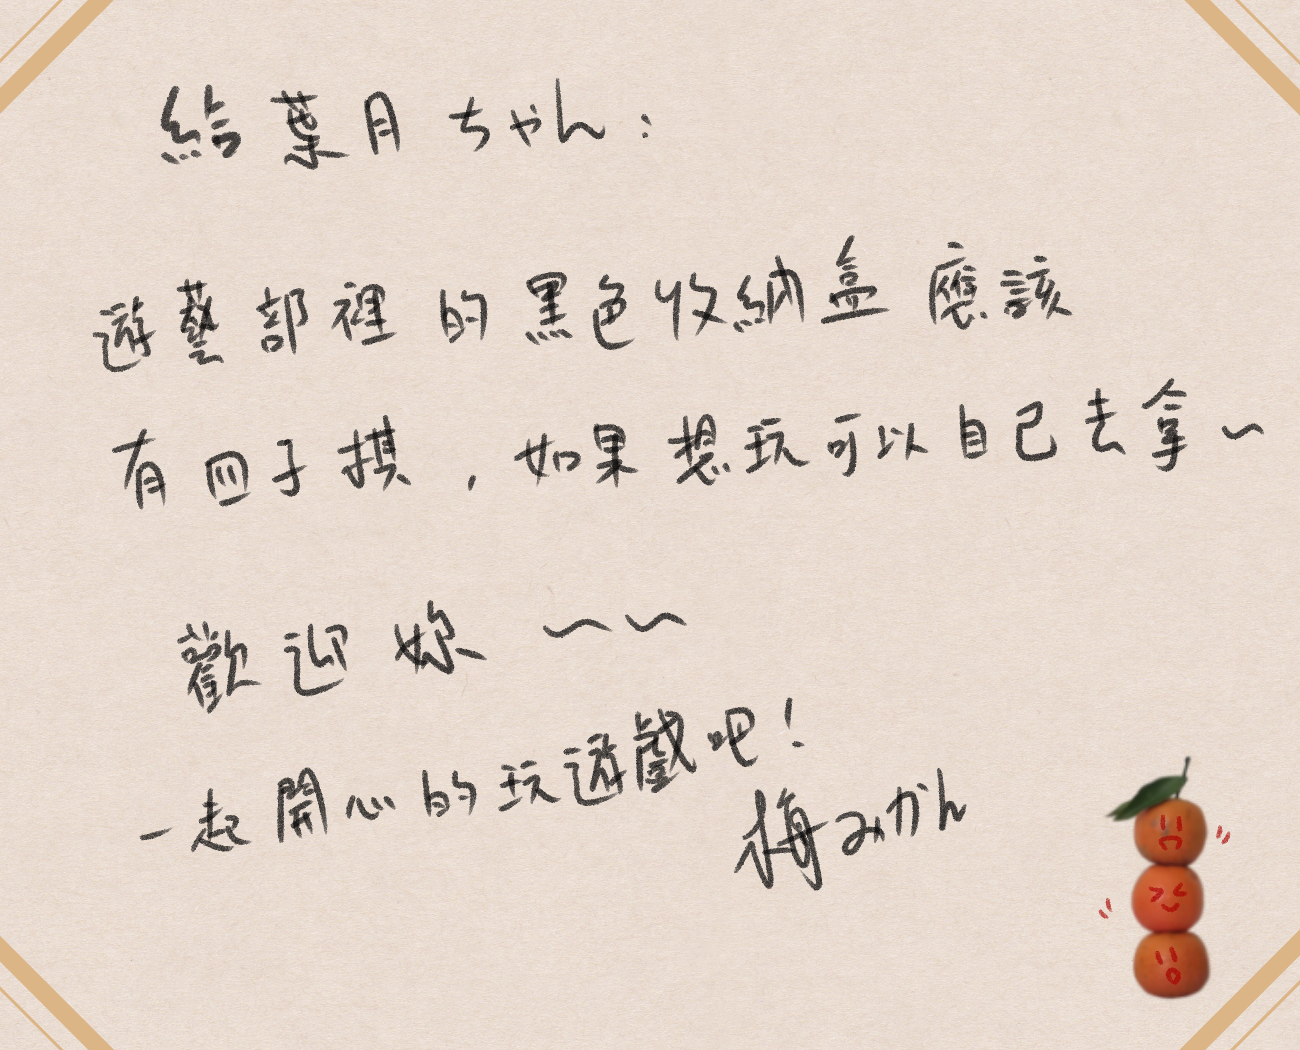 給葉月ちゃん：
遊藝部裡的黑色收納盒應該
有四子棋，如果想玩可以自己去拿～
歡迎妳～～
一起開心的玩遊戲吧！
梅みかん